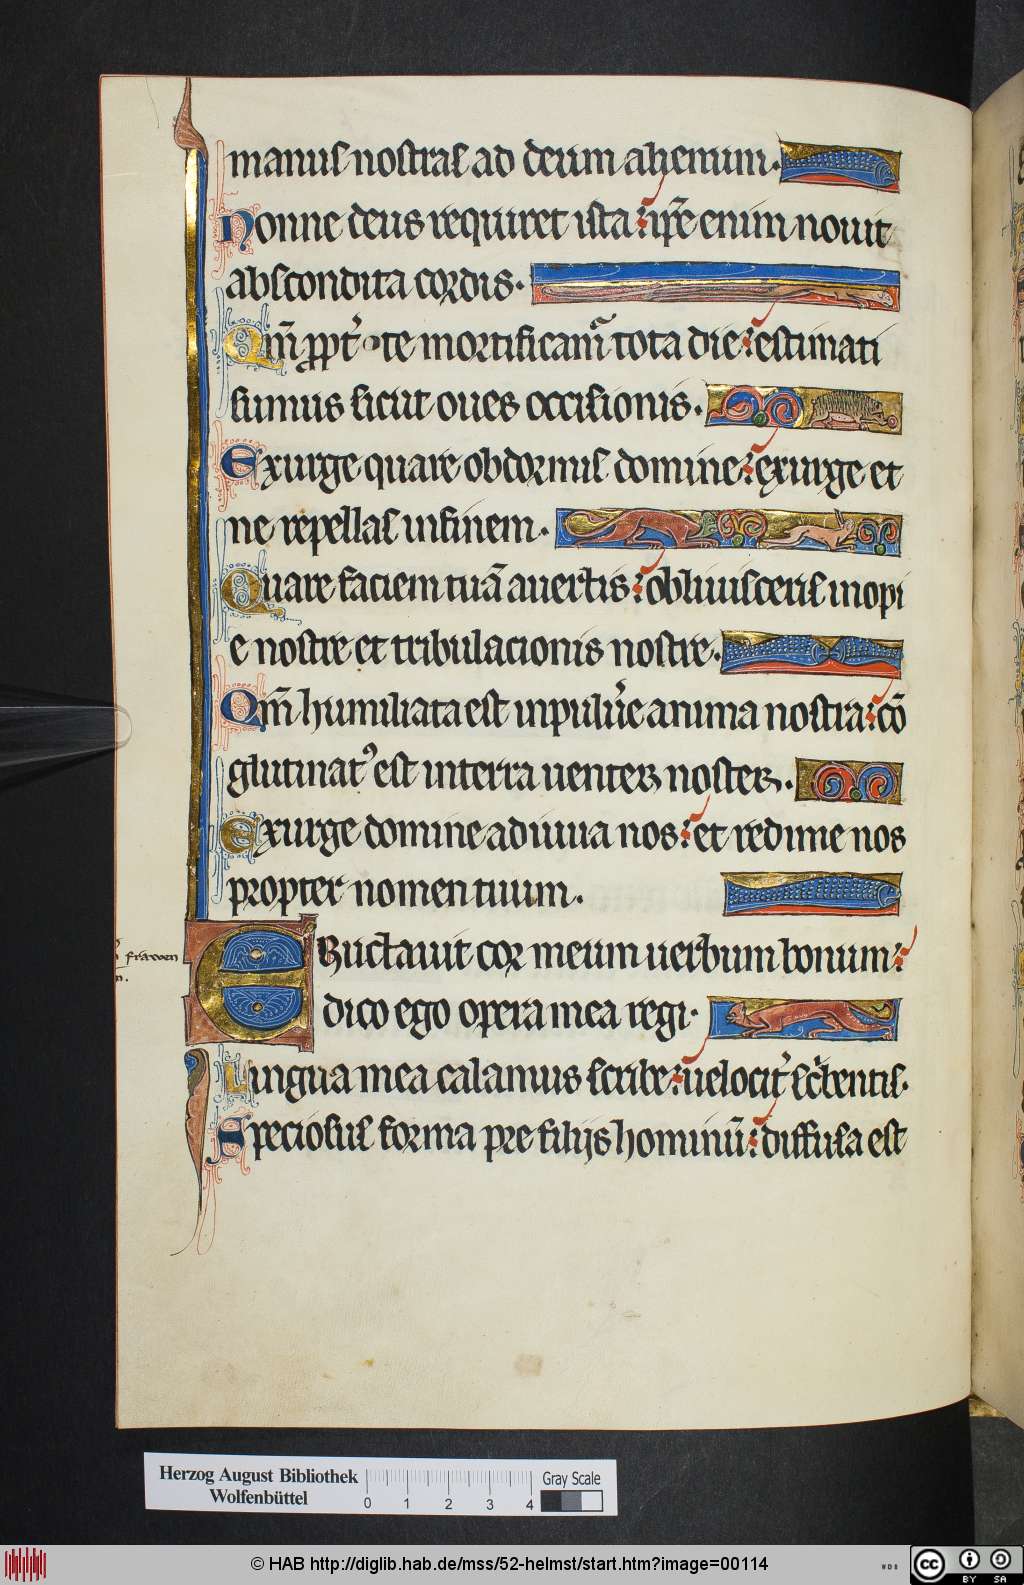 manus nostras ad deum alienum.
Nonne deus requiret ista: ip̄e enim nouit
abscondita cordis.
Qm̄ ꝓpt̉ te mortificam̄ tota die: estimati
sumus sicut oues occisionis.
Exurge quare obdormis domine: exurge et
ne repellas in finem.
Quare faciem tuā auertis: obliuisceris inopi
e nostre et tribulacionis nostre.
Qm̄ humiliata est in puluͤe anima nostra: cō
glutinatꝰ est in terra uenter noster.
Exurge domine adiuua nos: et redime nos
propter nomen tuum.
ERuctauit cor meum uerbum bonum:
dico ego opera mea regi.
frawen
Lingua mea calamus scribe: uelocit̉ sc̉bentis.
Speciosus forma pre filijs hominū: diffusa est
Herzog August Bibliothek
Wolfenbüttel
0 1 2 3 4
Gray Scale
© HAB http://diglib.hab.de/mss/52-helmst/start.htm?image=00114
cc BY SA